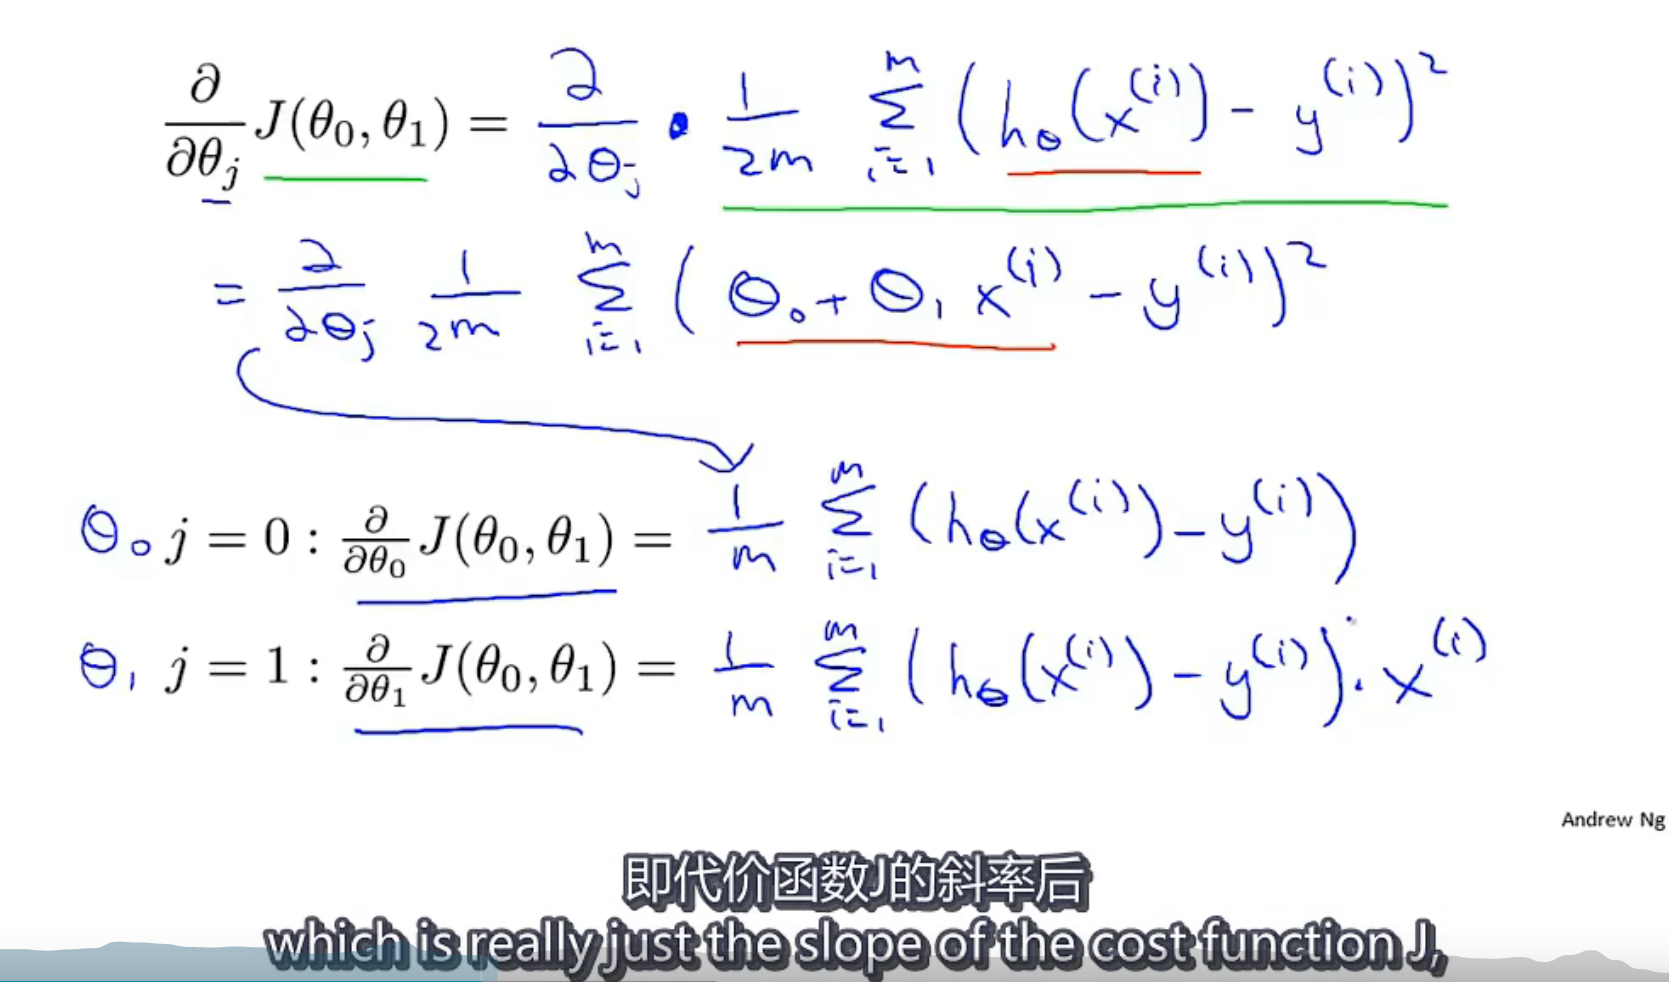 ∂/∂θ_j J(θ₀, θ₁) = ∂/∂θ_j · 1/2m Σ_{i=1}^{m} (h_θ(x^(i)) - y^(i))²
= ∂/∂θ_j 1/2m Σ_{i=1}^{m} (θ₀ + θ₁ x^(i) - y^(i))²
θ₀ j = 0 : ∂/∂θ₀ J(θ₀, θ₁) = 1/m Σ_{i=1}^{m} (h_θ(x^(i)) - y^(i))
θ₁ j = 1 : ∂/∂θ₁ J(θ₀, θ₁) = 1/m Σ_{i=1}^{m} (h_θ(x^(i)) - y^(i)) · x^(i)
Andrew Ng
即代价函数J的斜率后
which is really just the slope of the cost function J,